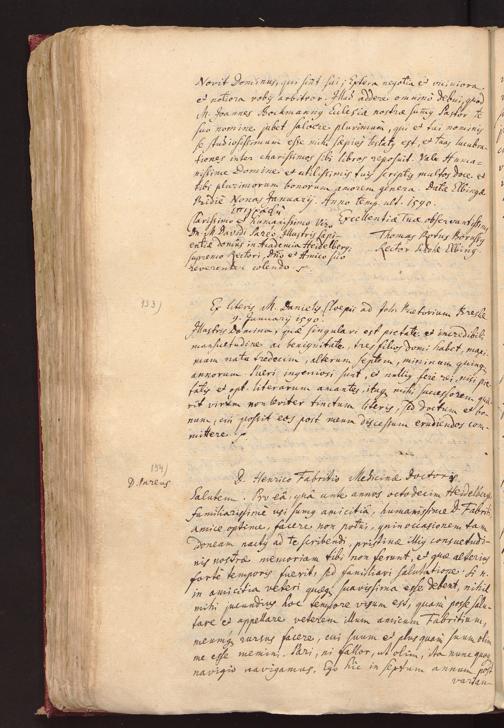 Novit Dominus, qui sint sui; Extera negotia et viciniora
et notiora vobis arbitror. Illud addere omnino debui, quod
M. Joannes Bochmannus Eclesiæ nostræ Pastor te
suo nomine jubet salvere plurimum, qui et tui nominis
se studiosissimum esse mihi sæpius testatus est, et tuas lucubra-
tiones inter charissimos sibi libros reposuit. Vale Huma-
nissime Domine et utilissimis tuis scriptis multos doce, et
tibi plurimorum bonorum amorem genera. Datæ Elbingæ
Pridie Nonas Januarij. Anno temp. ult. 1590.
Excellentiæ Tuæ observantissimus
Clarissimo et humanissimo Viro
Dn. M. Davidi Pareo, Illustris Sapi-
entiæ domus in Academia Heidelberg.
supremo Rectori, Dno et Amico suo
reverenter colendo
Thomas Rotus Borussus
Rector Scholæ Elbing.
193)
Ex literis M. Danielis ad Joh.
9. Januarij 1590.
Illustris Domina, quæ singulari est pietate et incredibili
mansuetudine ac benignitate, tres filios domi habet, maxi-
mum natu tredecim, alterum septem, minimum quinque
annorum. Pueri ingeniosi sunt, et nullius fere rei, nisi pie-
tatis et opt. literarum amantes. itaque mihi successorem quæ-
rit virum non leviter tinctum literis, sed doctum et bo-
num, cui possit eos post meum discessum erudiendos com-
mittere.
194)
D. Pareus
D. Henrico Fabritio Medicinæ Doctori
Salutem. Pro ea, qua ante annos octodecim Heidelbergæ
familiarissime usi sumus amicitia, humanissime D. Fabriti
amice optime, facere non potui, quin occasionem tam
idoneam nactus ad te scribendi, pristinæ illius consuetudi-
nis nostræ memoriam tibi non ferrem, et quæ
forte temporis fuerit, sed familiari salutatione. Si n.
in amicitia veteri quæque suavissima esse debent, nihil
mihi jucundius hoc tempore visum est, quam posse salu-
tare et appellare veterem illum amicum Fabritium,
meumque rursus facere, cui suum et plus quam suum olim
me esse memini. Pari, ni fallor, ut olim, ita nunc quoque
navigio navigamus. Ego hic in septimum annum post
varian-